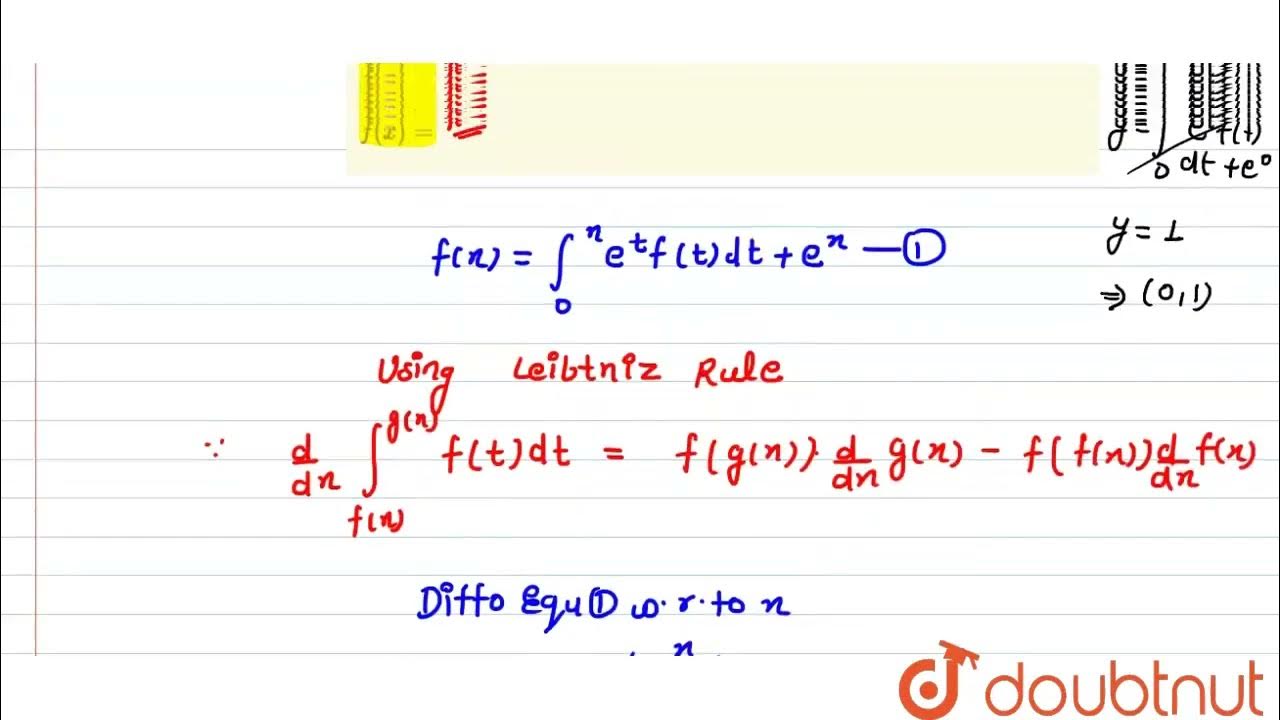 f(x) =
y = ∫ f(t)
0 dt + e⁰
y = 1
⇒ (0,1)
f(x) = ∫₀ˣ eᵗ f(t) dt + eˣ — ①
Using Leibtniz Rule
∵ d/dx ∫_{f(x)}^{g(x)} f(t) dt = f(g(x)) · d/dx g(x) - f(f(x)) d/dx f(x)
Diffo Equ ① w.r.to x
doubtnut